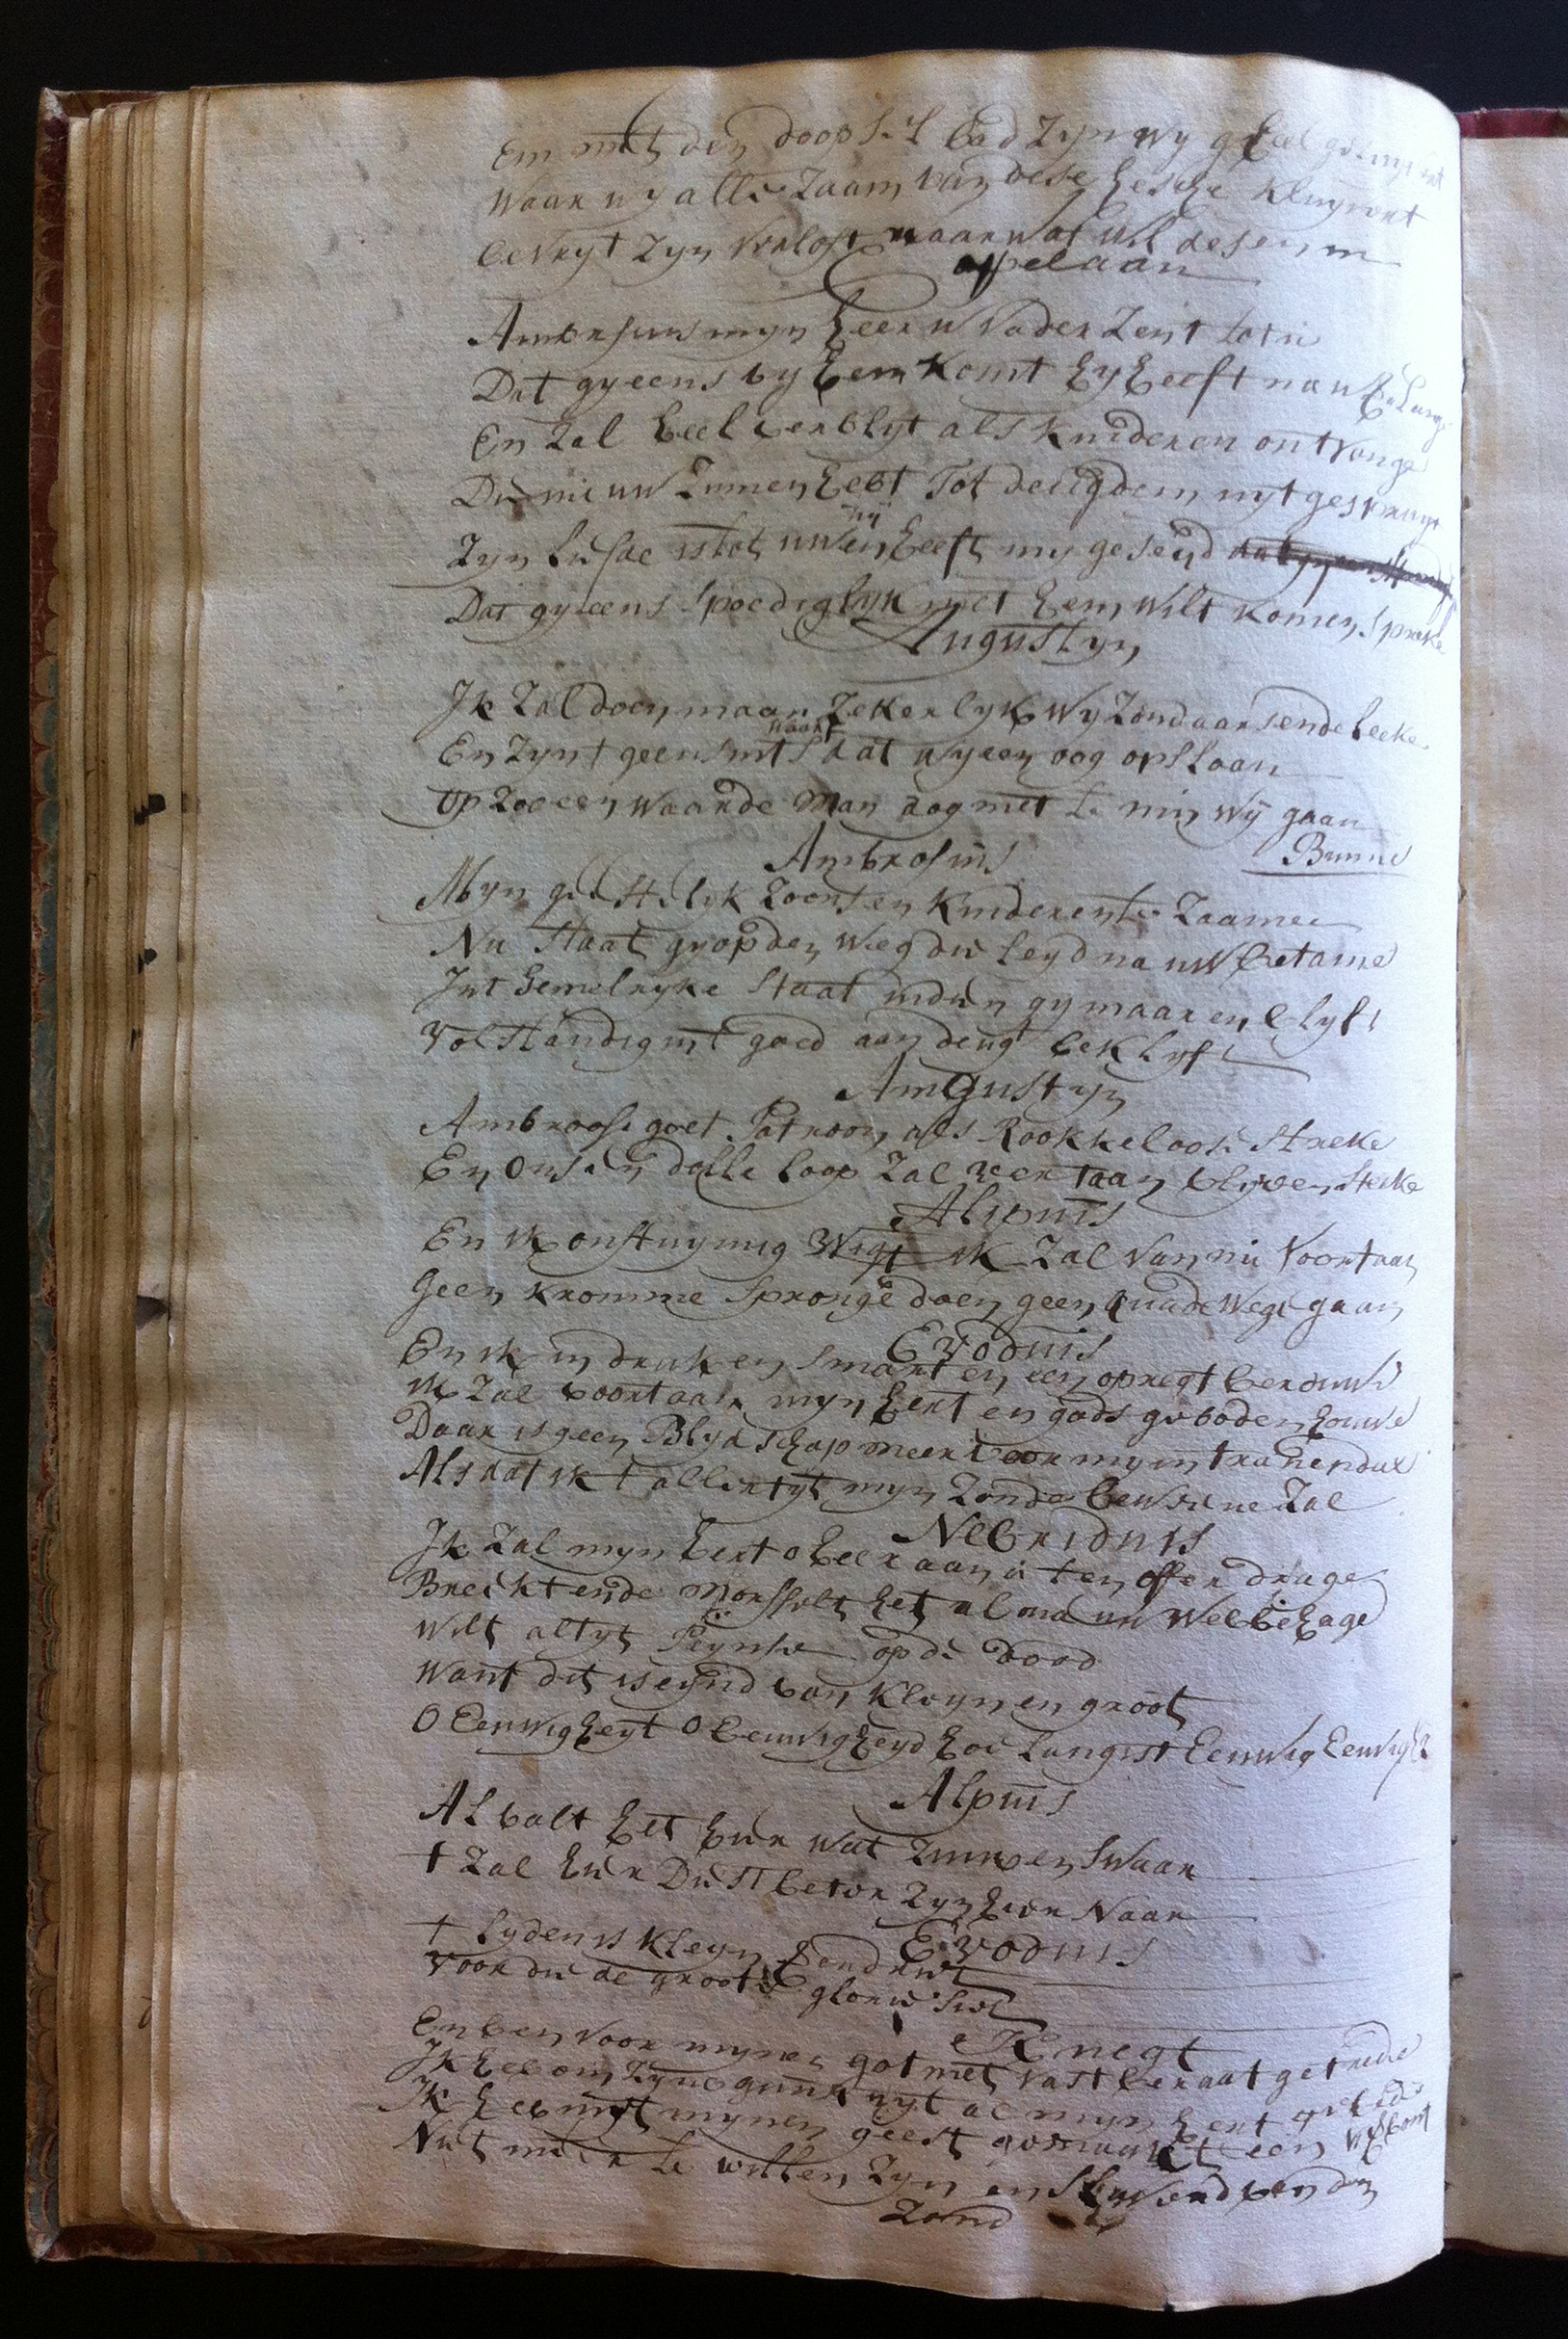 Em met den doopsel bad Zyn wy gheel
Waar wy alle Zaam van dese helsche kluywert
bevryt Zyn verlost maar wat wil desen m
apelaan
Ambrosius myn heer u vader Zent tot u
Dat gy eens by hem komt hy heeft na u
En Zal heel verblyt als kinderen ontvange
Die nu uw Zinnen hebt Tot deugden uyt
Zyn liefde is tot uw en hy heeft my geseyd
Dat gy eens spoediglyk met hem wilt komen spreke
Augustyn
Ik Zal doen maar Zekerlyk wy Zondaars ende leeke
En Zynt geensints waart dat wy een oog opslaan
Op Zoo een waarde man nog met te min wy gaan
Binne
Ambrosius
Myn geestelyk Zoons en kinderen te Zaame
Nu staat gy op den weg die leyd na uw betame
Int hemelryke staat indien gy maar en blyft
Volstandig int goed aan deugt beklyft
Amgustyn
Ambroose goet Patroon als Rookkeloose streke
En onsen dolle loop Zal veertaan blyven steke
Alipius
En ik onstuymig wigt ik Zal van nu voortaan
Geen kromme spronge doen geen quade wege gaan
Evodius
En ik in druk en smart en een opregt berouwe
ik Zal voortaan mijn hert en gods geboden houwe
Daar is geen Blydschap meer voor my in tranendal
Als dat ik t allertyt myn Zonde beweene Zal
Nebridius
Ik Zal myn hert o heer aan u ten offer drage
Breekt ende morsselt het al na uw welbehage
Wilt altyt Peynse op de dood
Want dit is eynd van kleyn en groot
O Eeuwigheyt O Eeuwigheyd hoe lang ist Eeuwig
Alpius
Al valt het hier wat Zuur en swaar
t Zal hier Dist beter Zyn hier Naar
Evodius
t lyden is kleyn
Voor die de groote glorie siet
Knegt
En ben voor mynen got met vast beraat getrede
Ik heb om Zyne gunst uyt al myn hert gebede
Ik heb met mynen geest gemaakt een verbont
Niet meer te willen Zyn en slavend van den
Zond